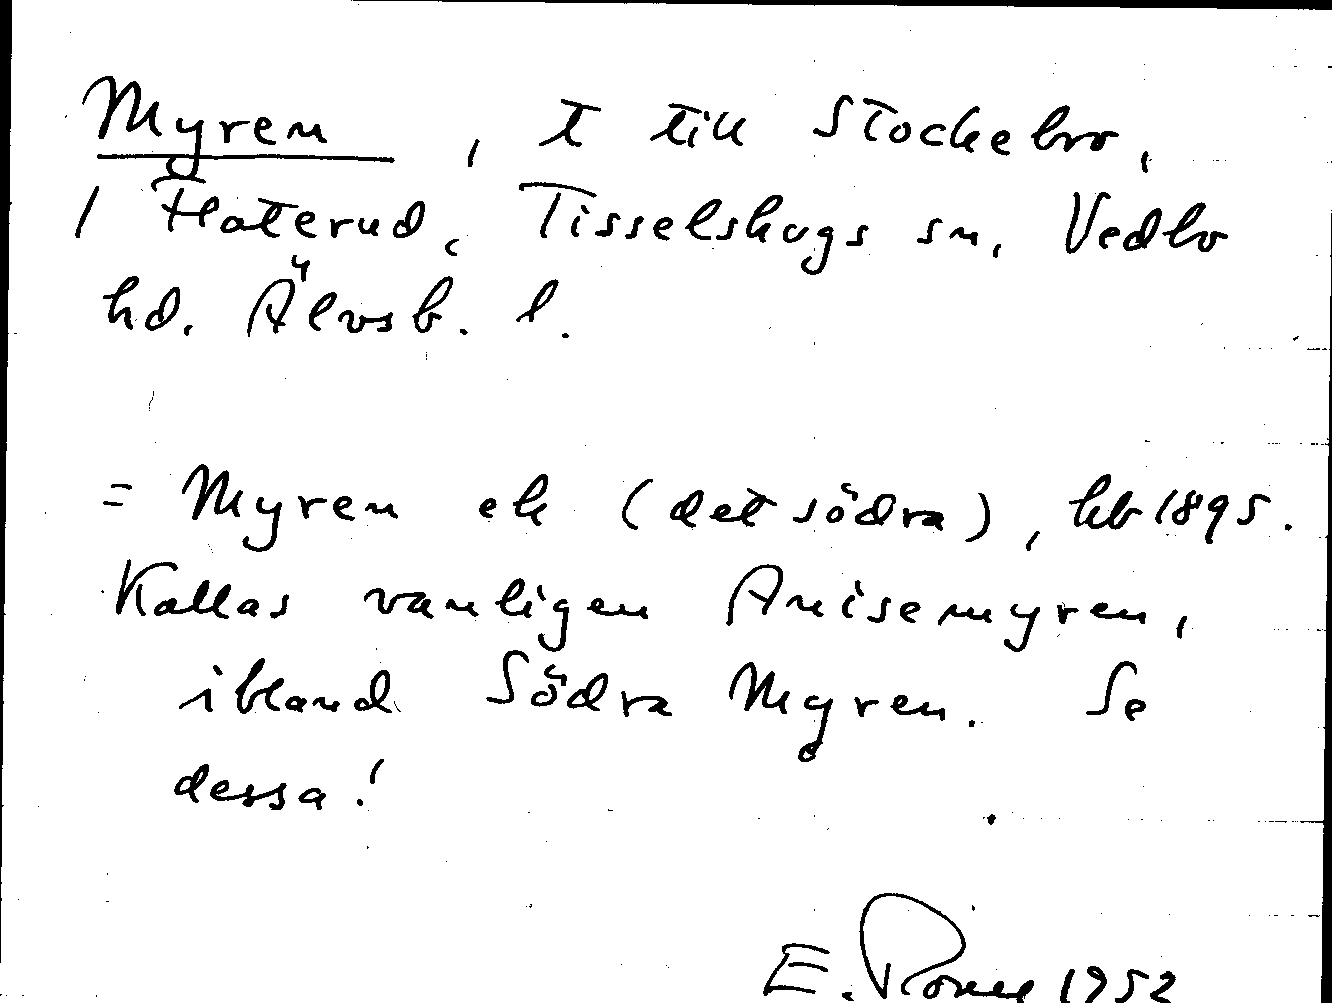 Myren, t till Stockebro,
1 Flaterud, Tisselskogs sn, Vedbo
hd. Älvsb. l.
= Myren ek (det södra), kb 1895.
Kallas vanligen Anisemyren,
ibland Södra Myren. Se
dessa!
E. 1952